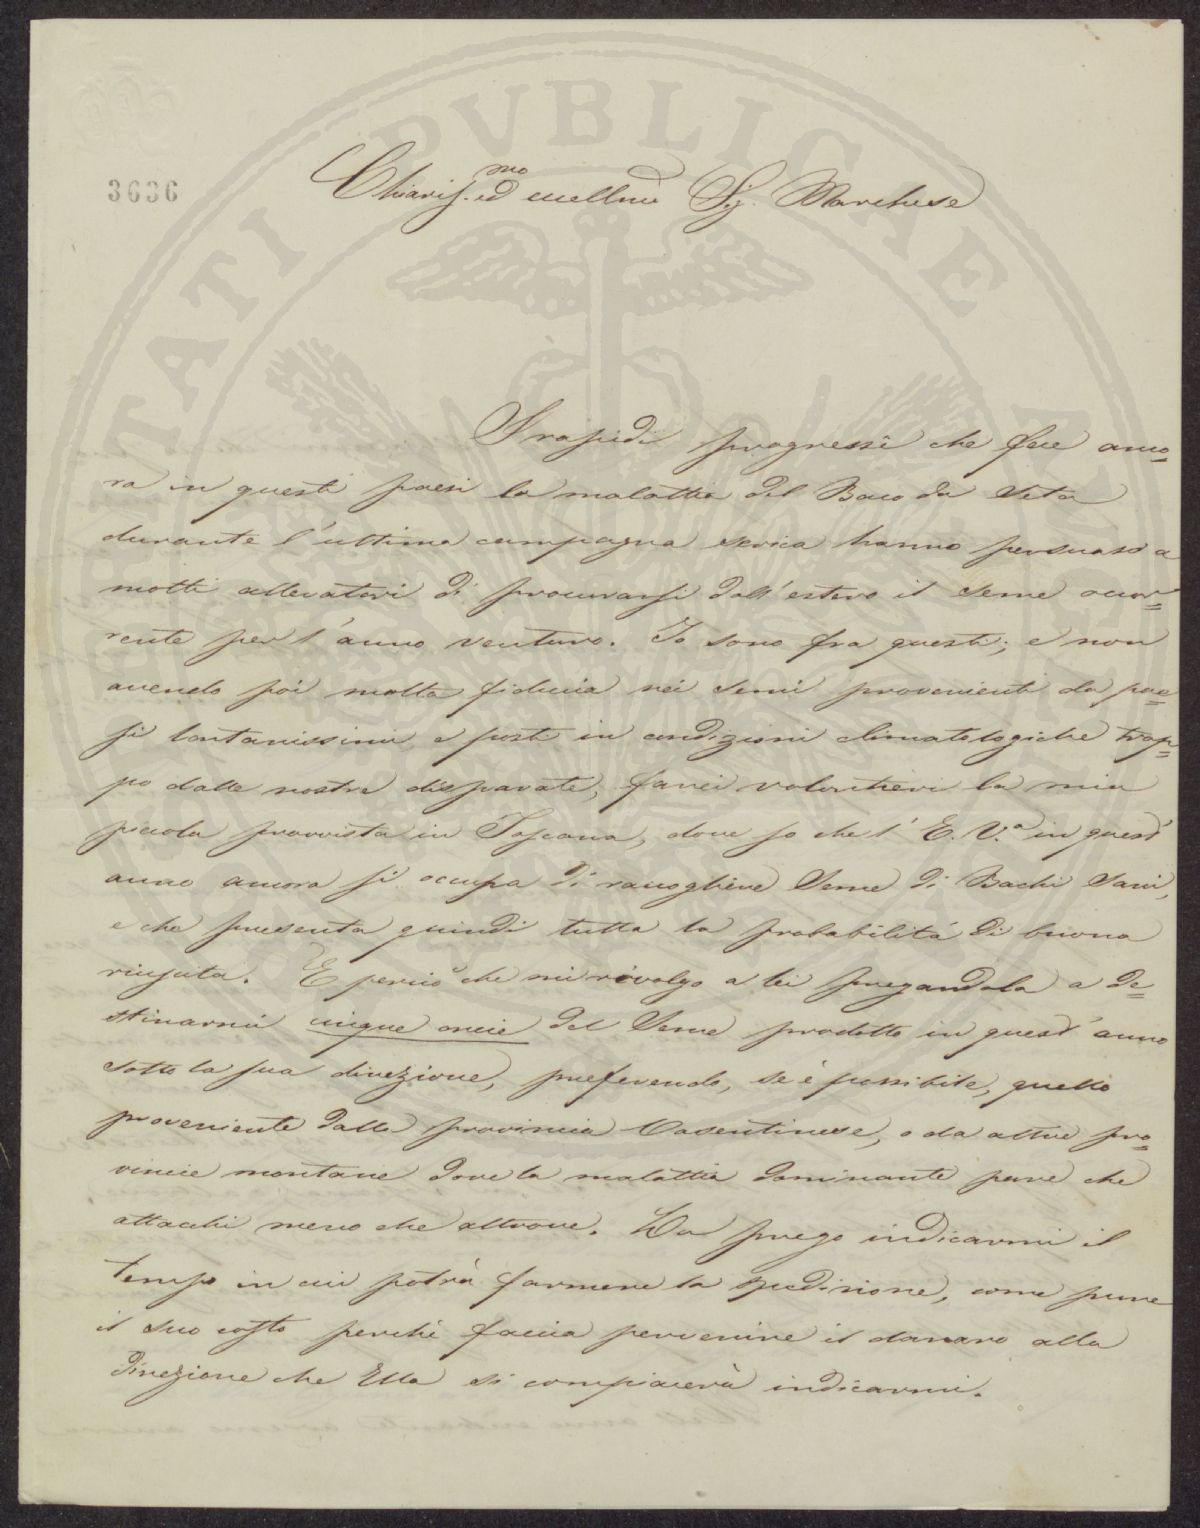 PVBLICAE
3636
Chiariss.mo ed eccellmo Sig. Marchese
I rapidi progressi che fece anco=
ra in questi paesi la malattia del Baco da Seta
durante l'ultima campagna serica hanno persuaso a
molti allevatori di procurarsi dall'estero il seme occor=
rente per l'anno venturo. Io sono fra questi; e non
avendo poi molta fiducia nei semi provenienti da pae=
si lontanissimi e posti in condizioni climatologiche trop=
po dalle nostre disparate, farei volontieri la mia
piccola provvista in Toscana, dove so che l'E. V.a in quest'
anno ancora si occupa di raccogliere Seme di Bachi Sani,
e che presenta quindi tutta la probabilità di buona
riuscita. È perciò che mi rivolgo a lei pregandola a de=
stinarmi cinque oncie del Seme prodotto in quest'anno
sotto la sua direzione, preferendo, se è possibile, quello
proveniente dalla provincia Casentinese, o da altre pro=
vincie montane dove la malattia dominante pare che
attacchi meno che altrove. La prego indicarmi il
tempo in cui potrà farmene la spedizione, come pure
il suo costo perchè faccia pervenire il danaro alla
direzione che Ella si compiacerà indicarmi.